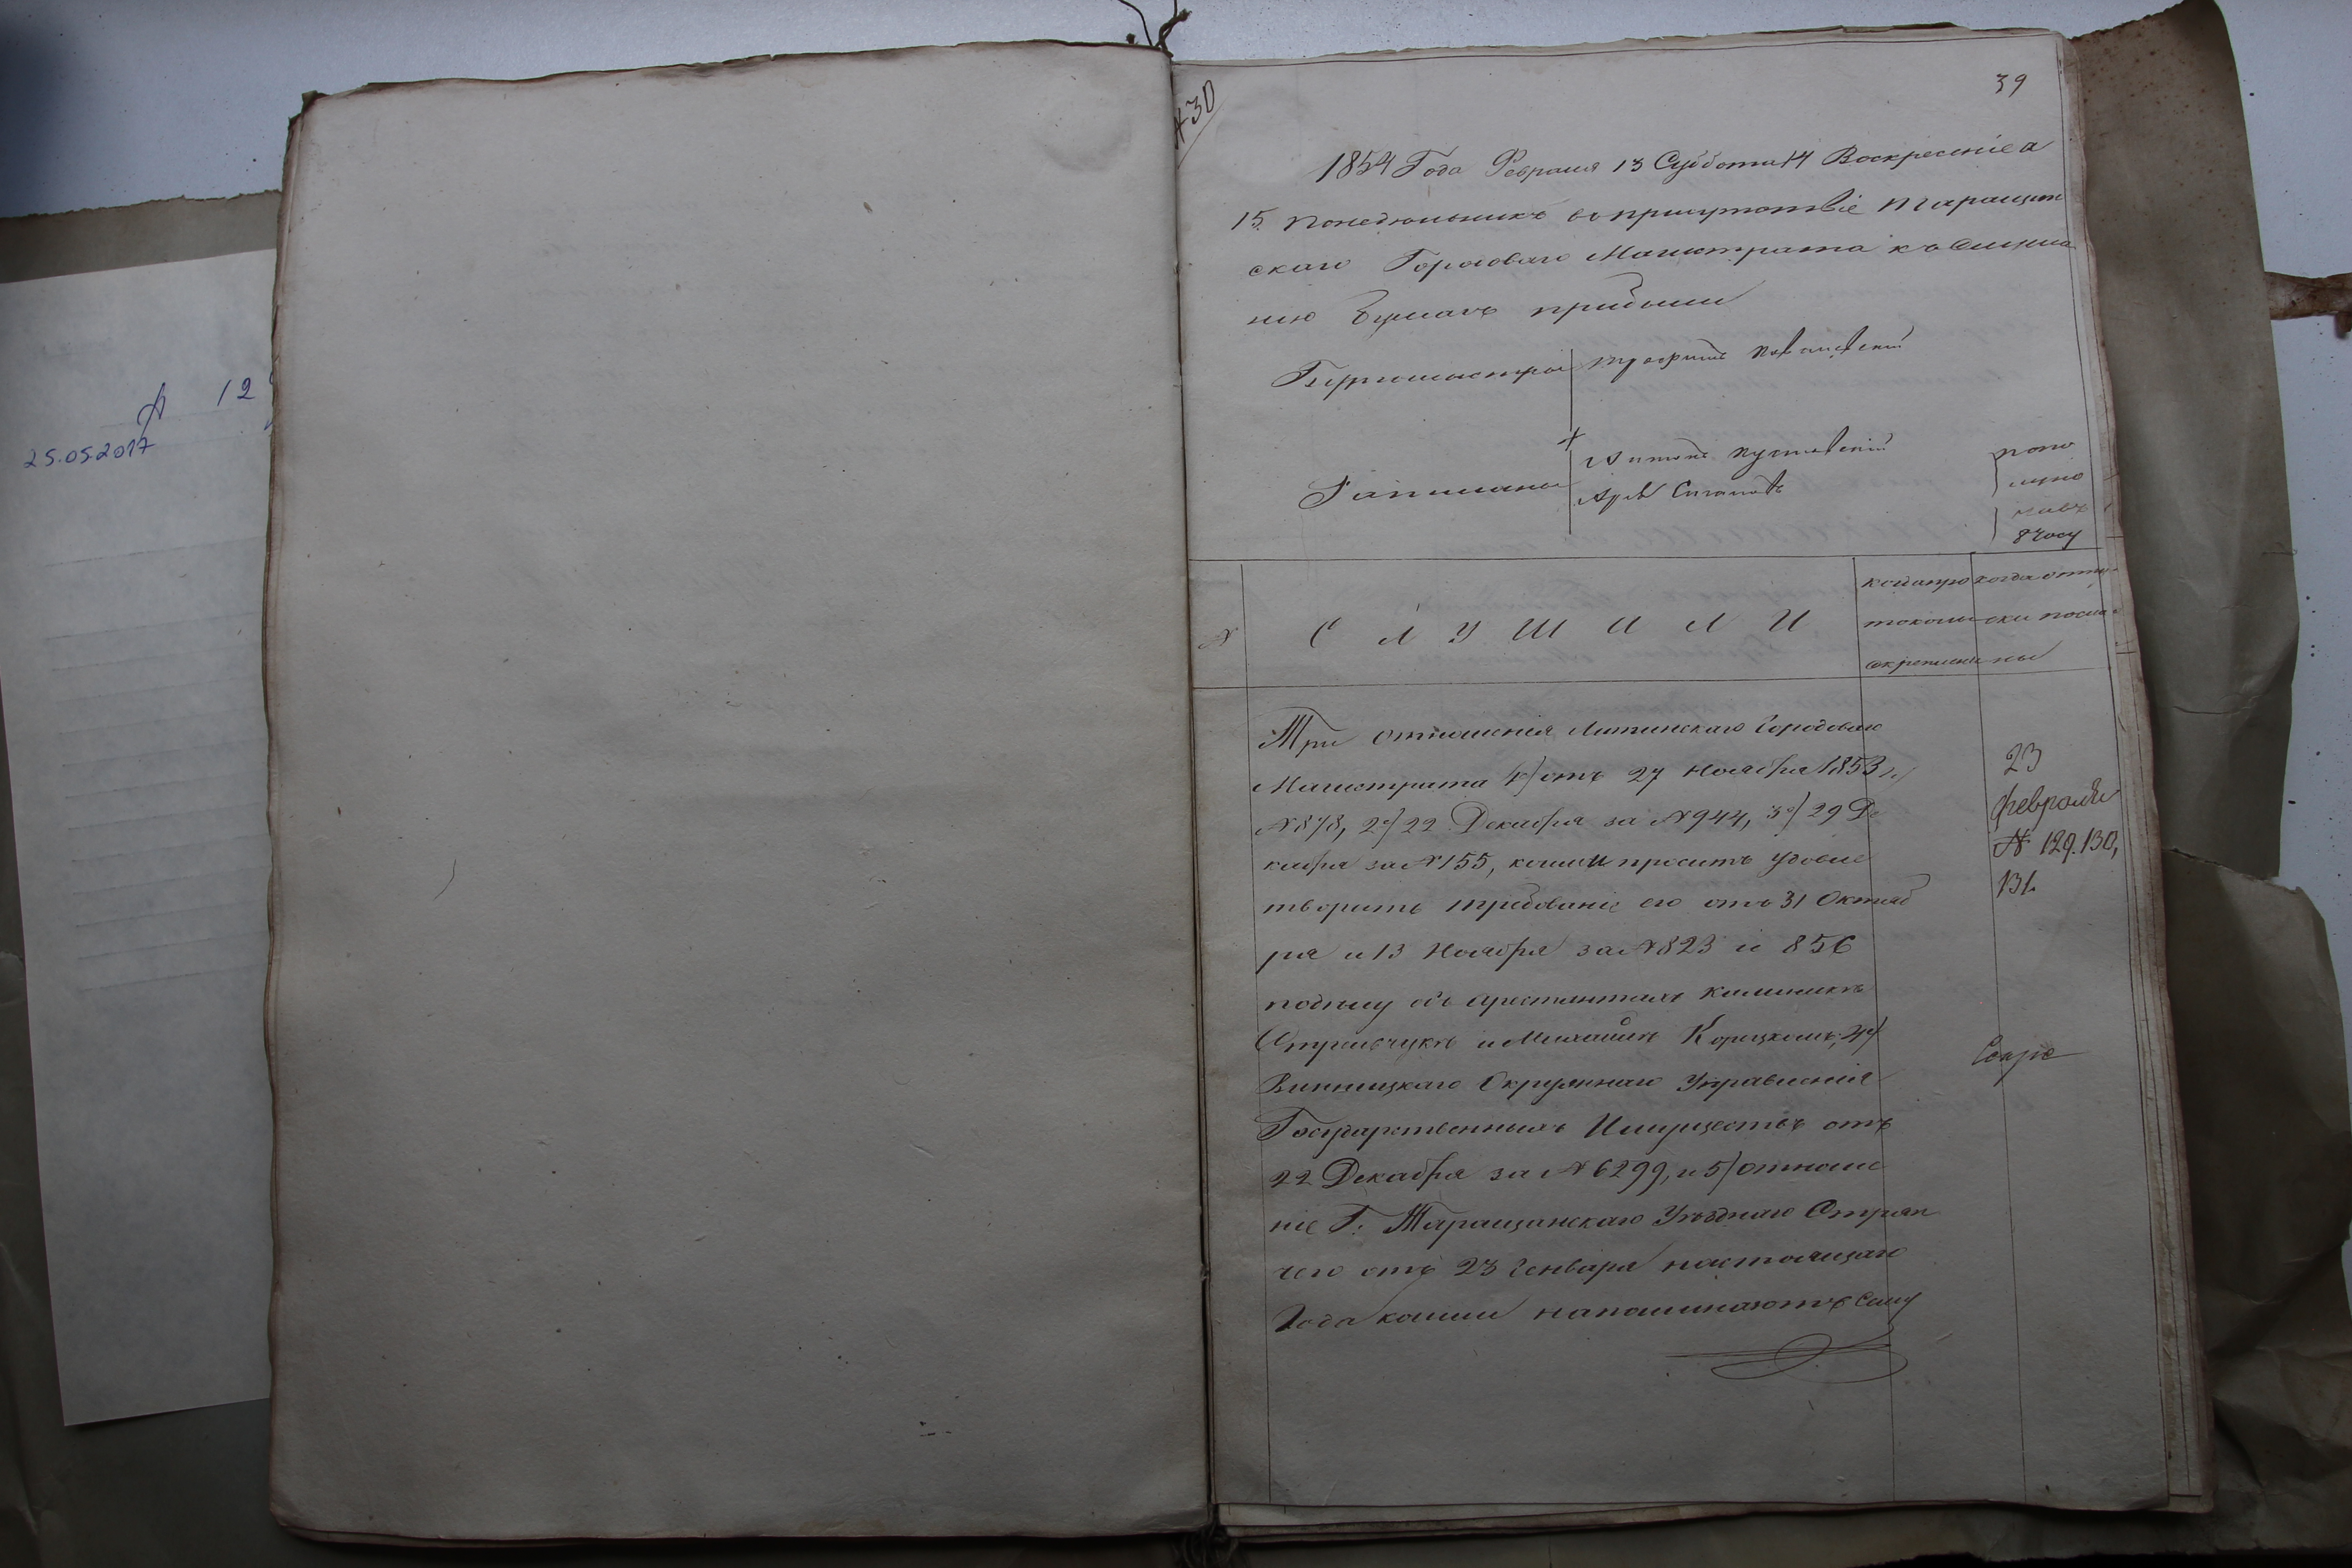 А 12
25.05.2017
№ 30
39
1854 Года Февраля 13 Суббота 14 Воскресеніе а
15. понедѣльникъ въ присутствіе Таращан
скаго Городоваго Магистрата къ слуша
нію бумагъ прибыли
Бургомистры Трофимъ
Ратманы Антонъ
по по
луно
въ
8 часу
№ СЛУШАЛИ
когда про
токолы
скреплены
когда отпу-
ски посла-
ны
Три отношенія Литинскаго Городоваго
Магистрата 1) отъ 27 Ноября 1853 г.
№ 878, 2) 22 Декабря за № 944, 3) 29 Де
кабря за № 155, коими проситъ удовле
творить требованіе его отъ 31 Октяб
ря и 13 Ноября за № 823 и 856
по дѣлу объ арестантахъ
и Михаилѣ Корецкомъ, 4)
Винницкаго Окружнаго Управленія
Государственныхъ Имуществъ отъ
22 Декабря за № 6299, и 5) отноше
ніе Г. Таращанскаго Уѣзднаго Стряп
чего отъ 23 Генваря настоящаго
Года коими напоминаютъ сему
23
февраля
№ 129. 130,
131.